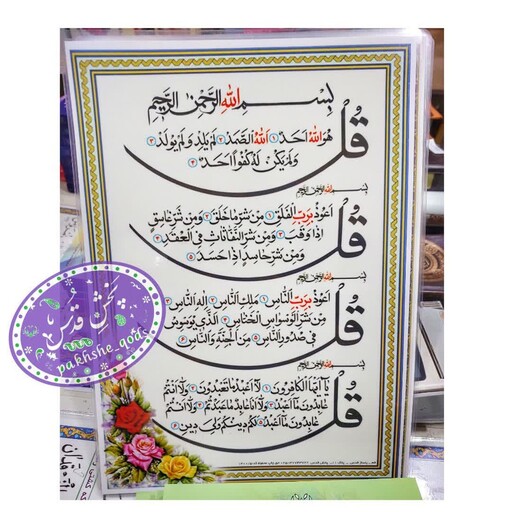 بِسْمِ اللهِ الرَّحْمنِ الرَّحِيمِ
قُلْ هُوَ اللهُ اَحَدٌ ۱ اَللهُ الصَّمَدُ ۲ لَمْ يَلِدْ وَلَمْ يُولَدْ ۳
وَلَمْ يَكُنْ لَهُ كُفُوًا اَحَدٌ ۴
بسم الله الرحمن الرحيم
قُلْ اَعُوذُ بِرَبِّ الْفَلَقِ ۱ مِنْ شَرِّ مَا خَلَقَ ۲ وَمِنْ شَرِّ غَاسِقٍ
اِذَا وَقَبَ ۳ وَمِنْ شَرِّ النَّفَّاثَاتِ فِي الْعُقَدِ ۴
وَمِنْ شَرِّ حَاسِدٍ اِذَا حَسَدَ ۵
بسم الله الرحمن الرحيم
قُلْ اَعُوذُ بِرَبِّ النَّاسِ ۱ مَلِكِ النَّاسِ ۲ اِلهِ النَّاسِ ۳
مِنْ شَرِّ الْوَسْوَاسِ الْخَنَّاسِ ۴ اَلَّذِي يُوَسْوِسُ
فِي صُدُورِ النَّاسِ ۵ مِنَ الْجِنَّةِ وَالنَّاسِ ۶
بسم الله الرحمن الرحيم
قُلْ يَا اَيُّهَا الْكَافِرُونَ ۱ لَا اَعْبُدُ مَا تَعْبُدُونَ ۲ وَلَا اَنْتُمْ
عَابِدُونَ مَا اَعْبُدُ ۳ وَلَا اَنَا عَابِدٌ مَا عَبَدْتُمْ ۴ وَلَا اَنْتُمْ
عَابِدُونَ مَا اَعْبُدُ ۵ لَكُمْ دِينُكُمْ وَلِيَ دِينِ ۶
پخش قدس
pakhshe.qods